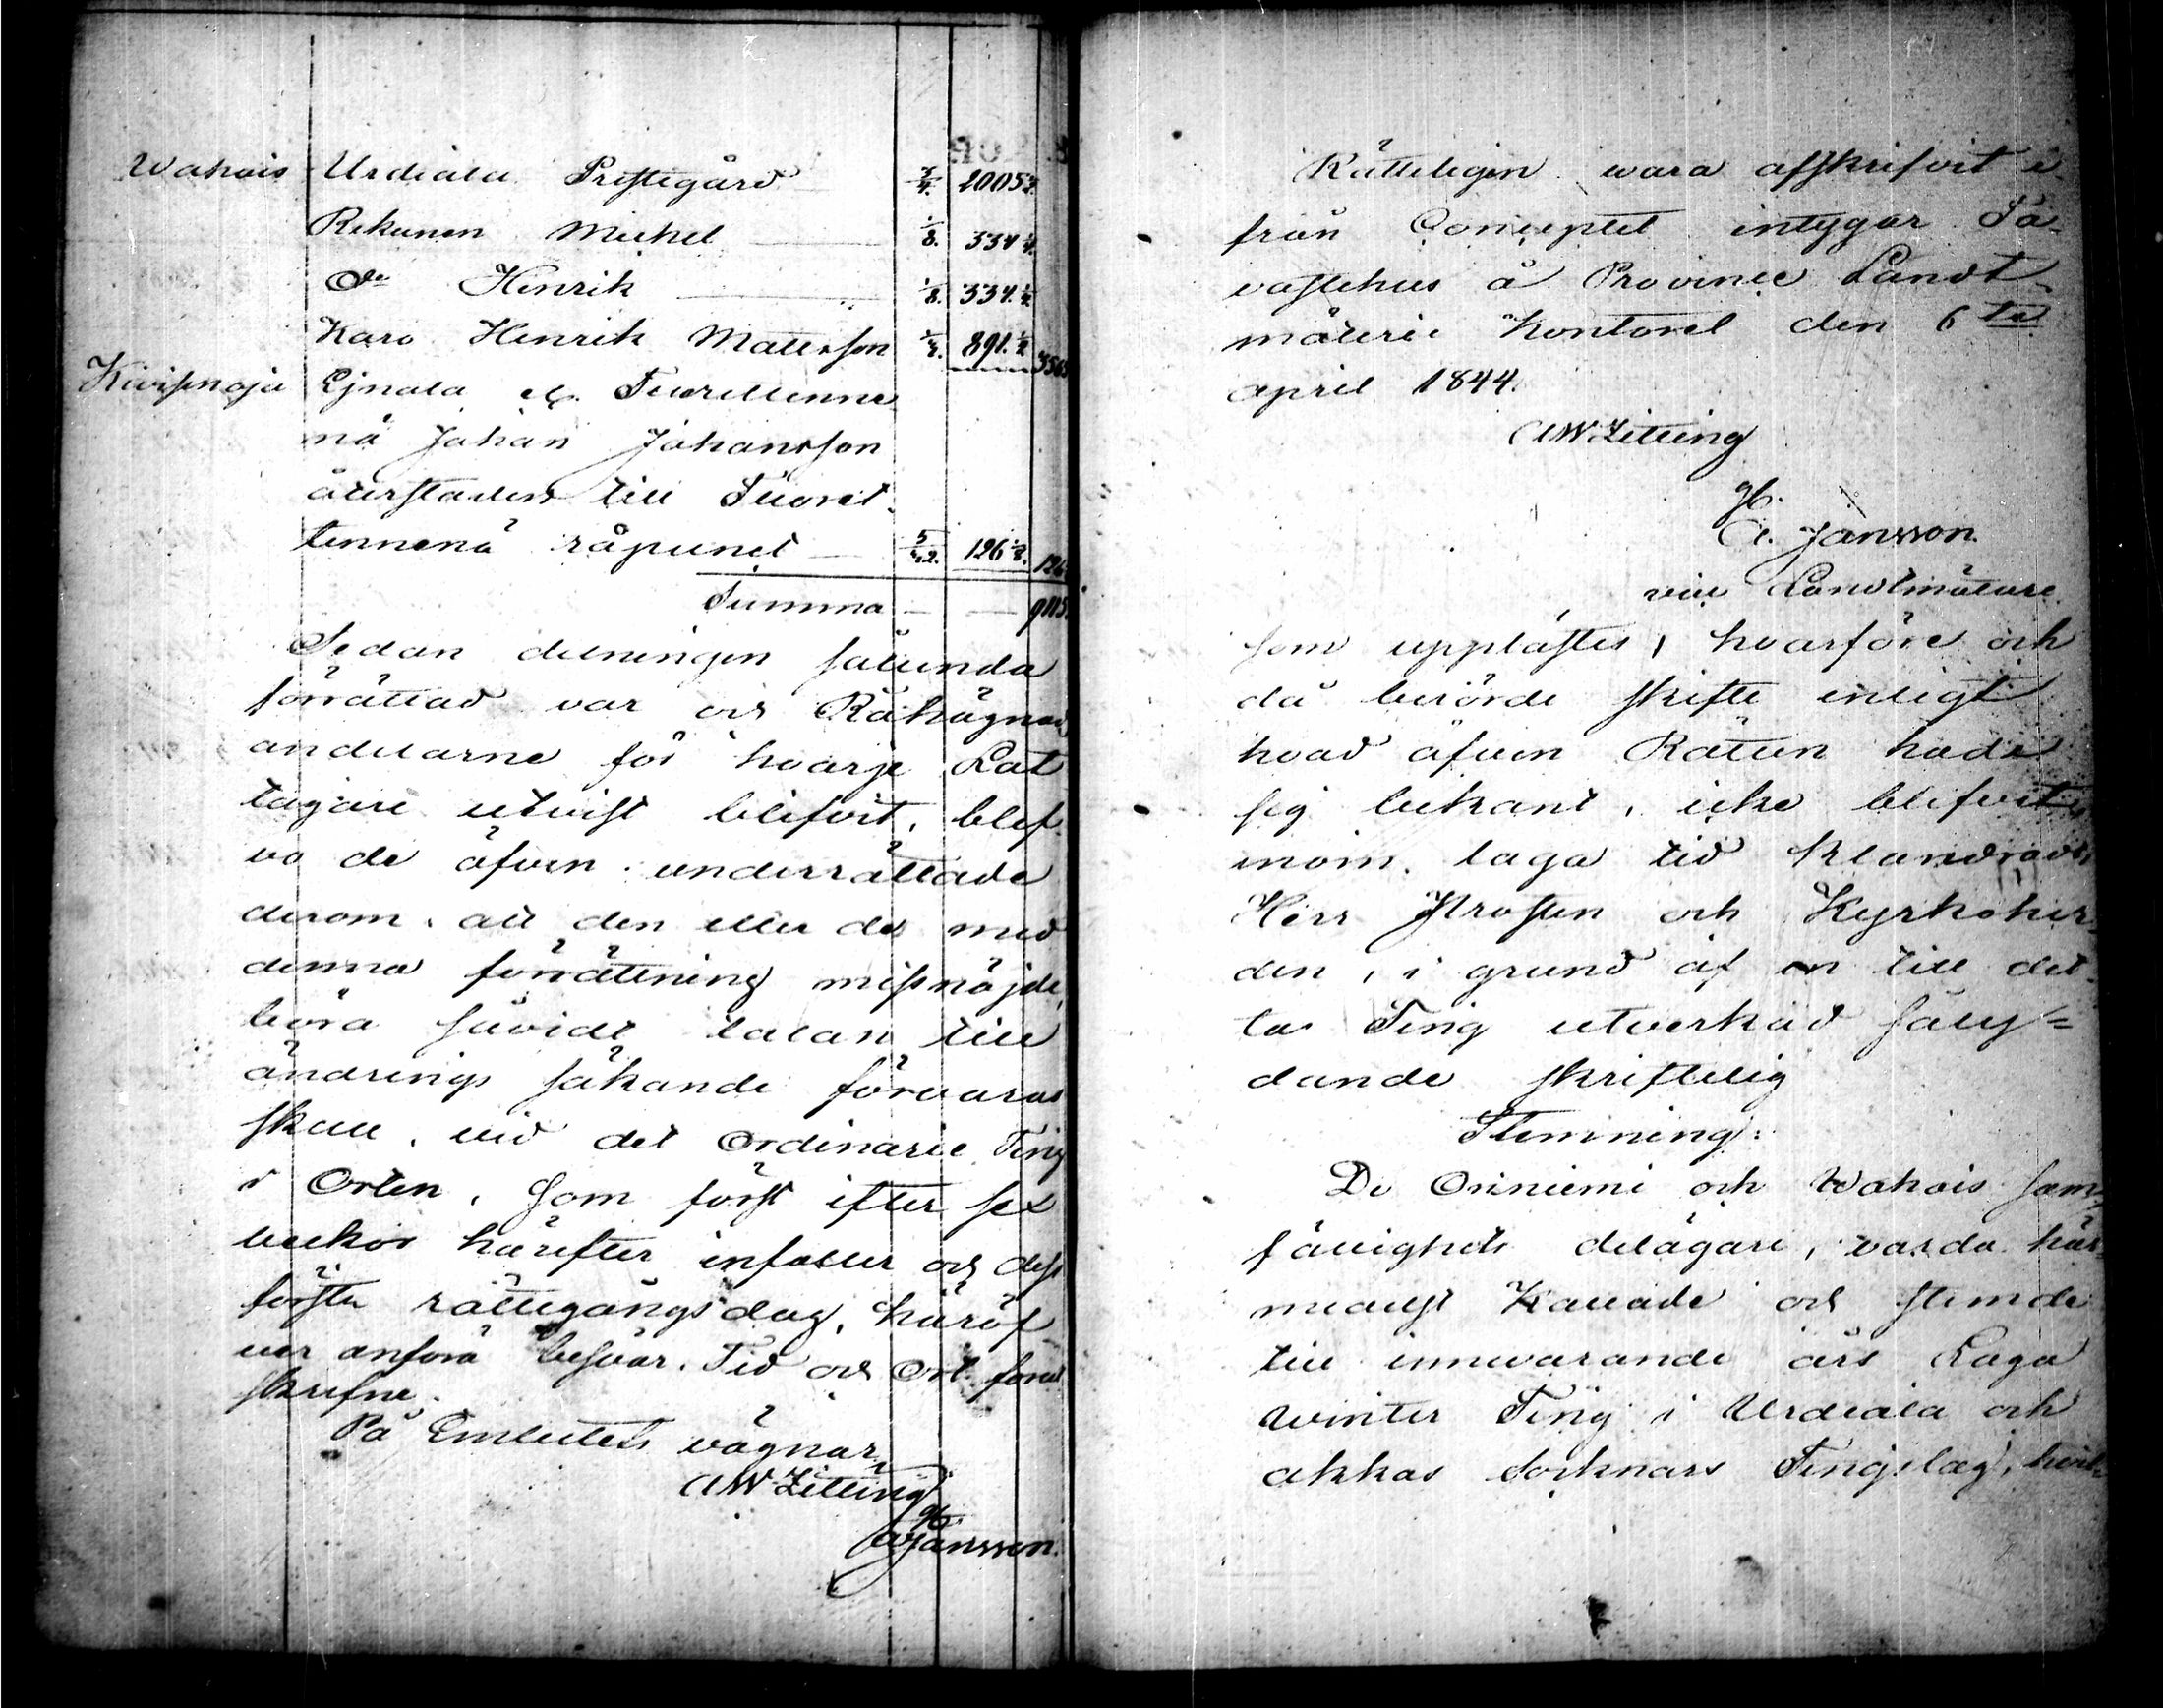 Wahais Urdiala Prestegård 3/4. 2005 1/2
Rekunen Michel 1/8. 334 1/4.
Do Henrik 1/8. 334. 1/4.
Karo Henrik Mattsson 891. 1/2 3565
Kivisenoja Ejnala el. Tuorellenne
nä Johan Johansson
återstaden till Tuoret
tennenä råpunct 5/42. 126 3/8. 126
Summa 9115.
Sedan delningen sålunda
förrättad var och Råhägnads
andelarne för hvarje Lat
tagare utvist blifvit, blef
vo de äfven underrättade
derom, att den eller de med
denna förrättning missnöjde,
böra såvidt talan till
ändrings sökande förvaras
skall, vid det Ordinarie Ting
i Orten, som först efter sex
veckor härefter infaller och dess
förste rättegångsdag, häröf
ver anföra besvär. Tid och Ort förut
skrefne.
På Embetets vägnar
AW Zitting
gr
A Jansson.
Rätteligen vara afskrifvit i
från Conceptet intygar Ta
vastehus å Province Landt
mäterie Kontoret den 6te
april 1844.
AW Zitting
gr.
A. Jansson.
vice Landtmätare
som upplästes, hvarföre och
då berörde skifte enligt
hvad äfven Rätten hade
sig bekant, icke blifvit
inom laga tid klandradt,
Herr Prosten och Kyrkoher
den, i grund af en till det
ta Ting utverkad såly=
dande skriftelig
Stemning:
De Onniemi och Wahais sam
fällighets delägare, varda här
medelst Kallade och stemde
till innevarande års Laga
Winter Ting i Urdiala och
akkas Socknars Tingslag, hvil